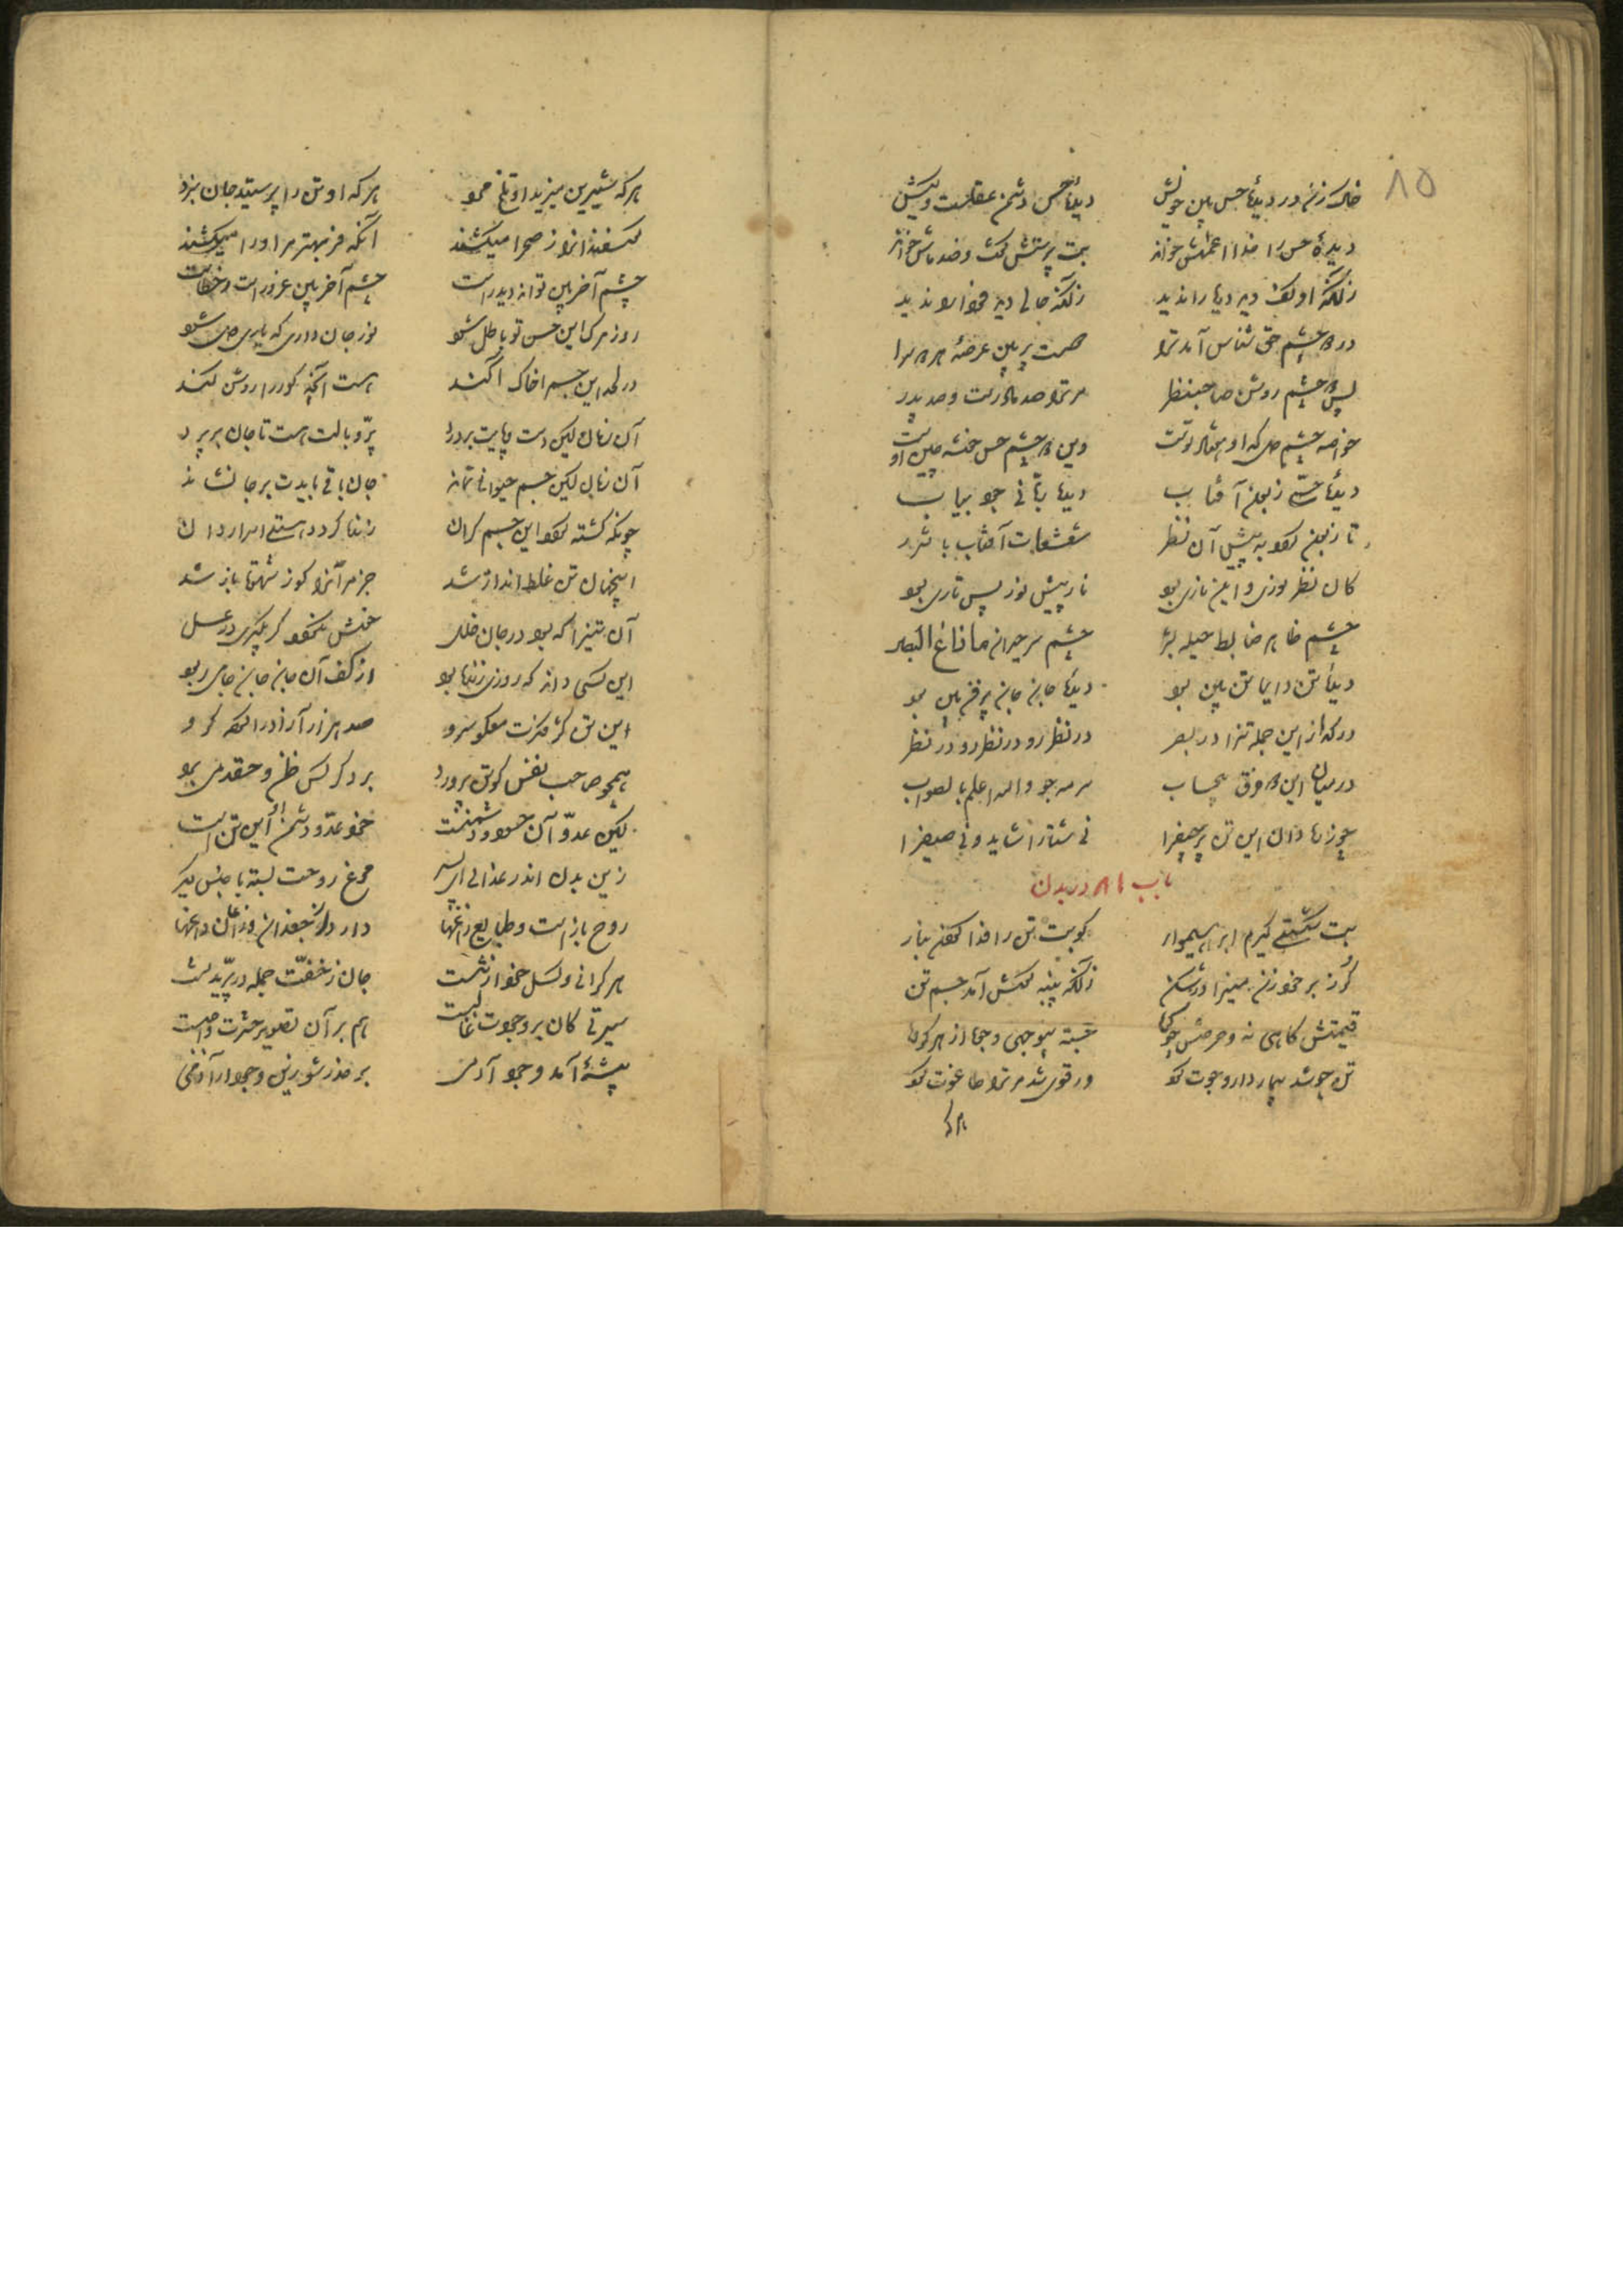 ۸۵
خاک زن در دیدهٔ حس بین خویش دیدهٔ حس دشمن عقلست و کیش
دیدهٔ حس را خدا اعماش خواند بت پرستش گفت و ضد ماش خواند
زانکه او کف دید و دریا را ندید زانکه حالی دید و فردا را ندید
در دو چشم حق شناس آمد ترا هست پر بین عرصهٔ هر دو سرا
پس دو چشم روشن صاحبنظر مر ترا صد مادرست و صد پدر
خواصه چشم دل که او هفتاد توست وین دو چشم حس خوشه چین اوست
دیدهٔ حسی زبون آفتاب دیدهٔ ربانی جو بیاب
تا زبون شود به پیش آن نظر شعشعات آفتاب با شرر
کان نظر نوری و این ناری بود نار پیش نور بس تاری بود
چشم ظاهر ضابط حیله بشر چشم سر حیران ما زاغ البصر
دیدهٔ تن دایما تن بین بود دیدهٔ جان جان پر فن بین بود
در گداز این جمله تن را در بصر در نظر رو در نظر رو در نظر
در میان این دو فرق بیحساب سرمه جو والله اعلم بالصواب
جوز نادان این تن پر حیف را نی شتا را شاید و نی صیف را
باب ۱۸ در بدن
بت شکستی گیرم ابراهیم‌وار کو بت تن را فدا کردن بنار
گرز بر خود زن منیرا در شکن زانکه پنبه گوش آمد جسم تن
قیمتش کاهی نه و حرصش چو کوه جبه
تن چو شد بیمار دارو جوت کرد ور قوی شد مر ترا طاغوت کرد
هر که
هر که شیرین میزید او تلخ مرد هر که او تن را پرستید جان نبرد
گوسفندان را ز صحرا میکشند آنکه فربه‌تر مر او را میکشند
چشم آخر بین تواند دید راست چشم آخر بین غرور است و خطاست
روز مرگ این حس تو باطل شود نور جان داری که یار دل شود
در لحد این چشم را خاک آکند هست آنچه گور را روشن کند
آن زمان کین دست و پایت بردرد پر و بالت هست تا جان بر پرد
آن زمان کین جسم حیوانی نماند جان باقی بایدت بر جا نشاند
چونکه کشته گردد این جسم گران زنده گردد هستی اسراردان
اینچنان تن غلط انداز شد جز مر آنرا کو ز شهوت باز شد
آن تنی را که بود در جان خلل خوش نگردد گر بگیری در عسل
این کسی داند که روزی زنده بود از کف آن جان جان جامی ربود
این تن کژ فکرت معکوس رو صد هزار آزاد را کرده گرو
همچو صاحب نفس کو تن پرورد بر دگر کس ظن و حقدی می‌برد
کین عدو و آن حسود و دشمنست خود عدو و دشمن او این تن است
زین بدن اندر عذابی ای پسر مرغ روحت بسته با جنس دگر
روح باز است و طبایع زاغها دارد از جغدان و زاغان داغها
هر گرانی و کسل خود از تنست جان ز خفت جمله در پریدنست
سیرتی کان بر وجودت غالبست هم بر آن تصویر حشرت واجبست
بیشهٔ آمد وجود آدمی بر حذر شو زین وجود ار آدمی